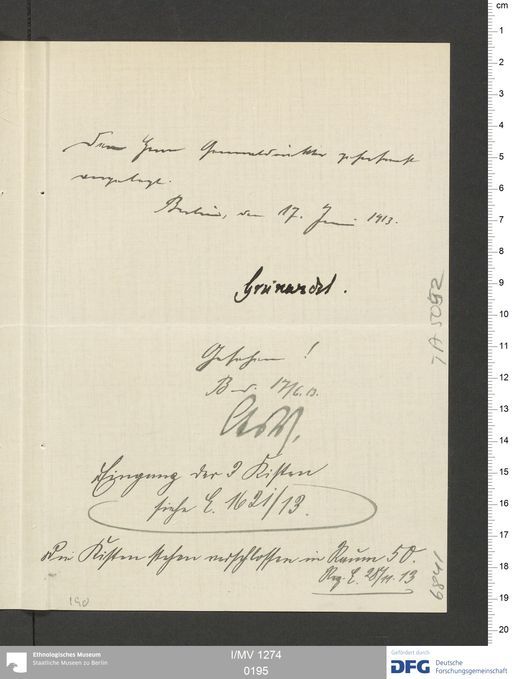 Dem Herrn Generaldirektor gehorsamst
vorgelegt.
Berlin, den 17. Juni 1913.
Grünwedel.
Gesehen!
B. d. 17/6.13.
Eingang der 9 Kisten
siehe E. 1621/13.
Die Kisten stehen verschlossen in Raum 50.
Reg. E. 28/11. 13
IA 5092
6841
190
cm
1
2
3
4
5
6
7
8
9
10
11
12
13
14
15
16
17
18
19
20
Ethnologisches Museum
Staatliche Museen zu Berlin
I/MV 1274
0195
Gefördert durch
DFG Deutsche
Forschungsgemeinschaft